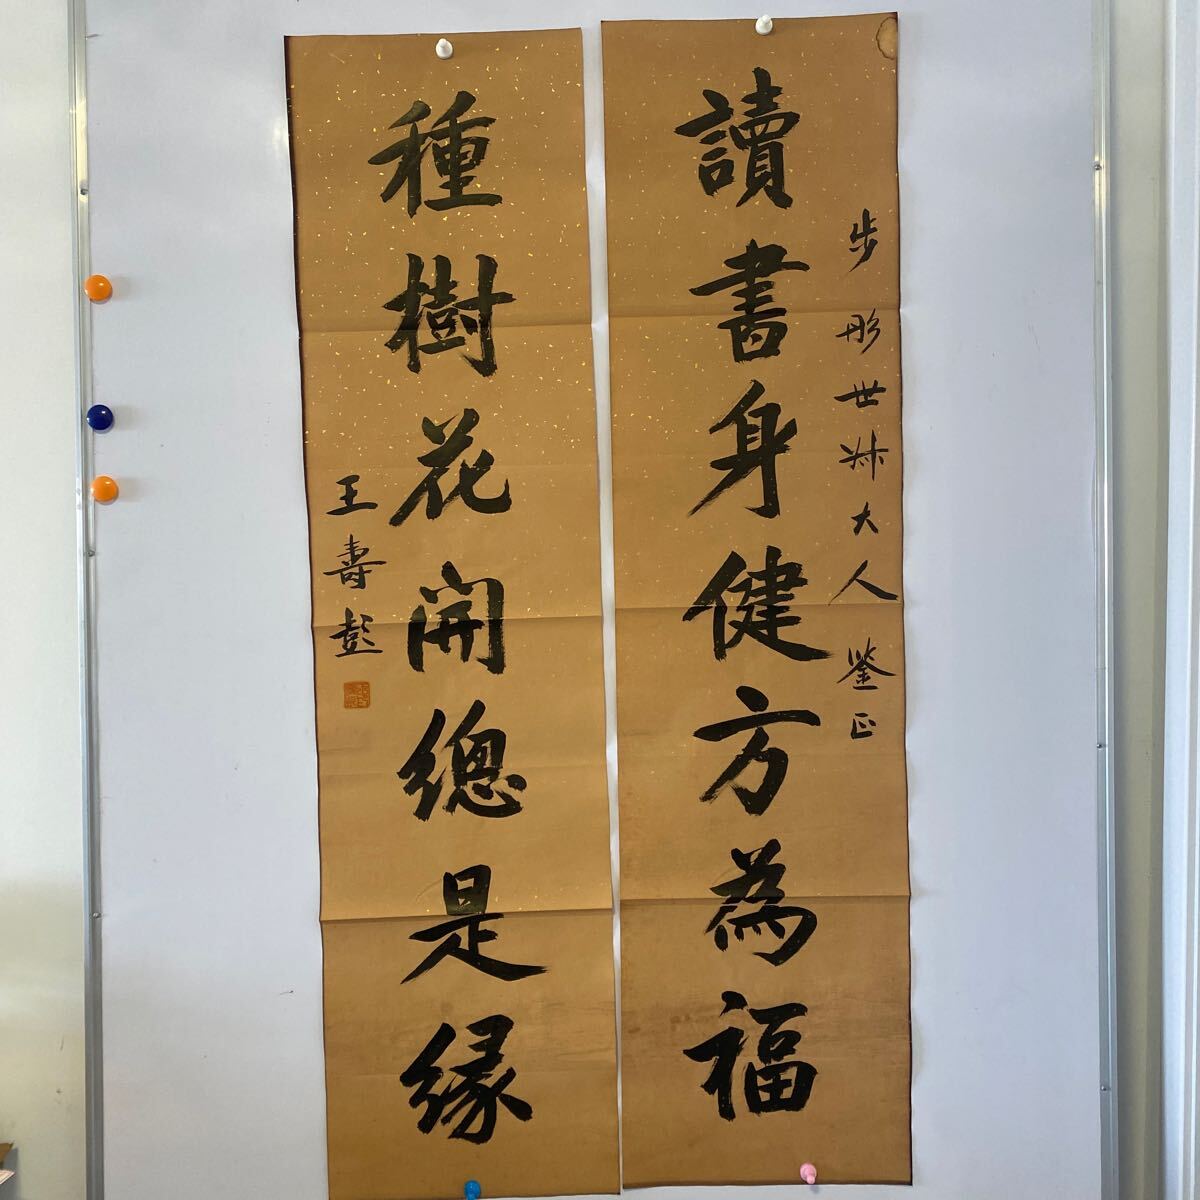 步彤世叔大人鉴正
讀書身健方為福
種樹花開總是緣
王壽彭